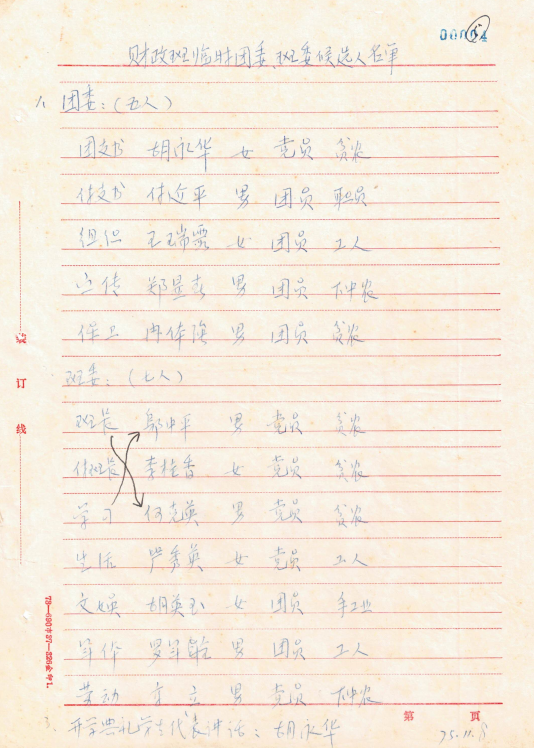 00004
5
财政班临时团委、班委候选人名单
1、团委:(五人)
团支书 胡永华 女 党员 贫农
付支书 付近平 男 团员 职员
组织 王瑞霞 女 团员 工人
宣传 郑显 男 团员 下中农
保卫 冉体 男 团员 贫农
班委:(七人)
班长 邬中平 男 党员 贫农
付班长 李桂香 女 党员 贫农
学习 何克英 男 党员 贫农
生活 严秀英 女 党员 工人
文娱 胡英玉 女 团员 手工业
男 团员 工人
劳动 立 男 党员 下中农
开学典礼学生代表讲话:胡永华
第 页
75.11.8
订
线